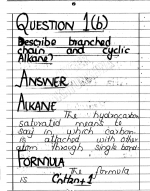 QUESTION 1(b)
Describe branched
chain and cyclic
Alkane?
ANSWER
ALKANE
The hydrocarbon
saturated means to
say in which carbon
is attached with other
atom through single bond.
FORMULA
The formula
is CnH2n+1